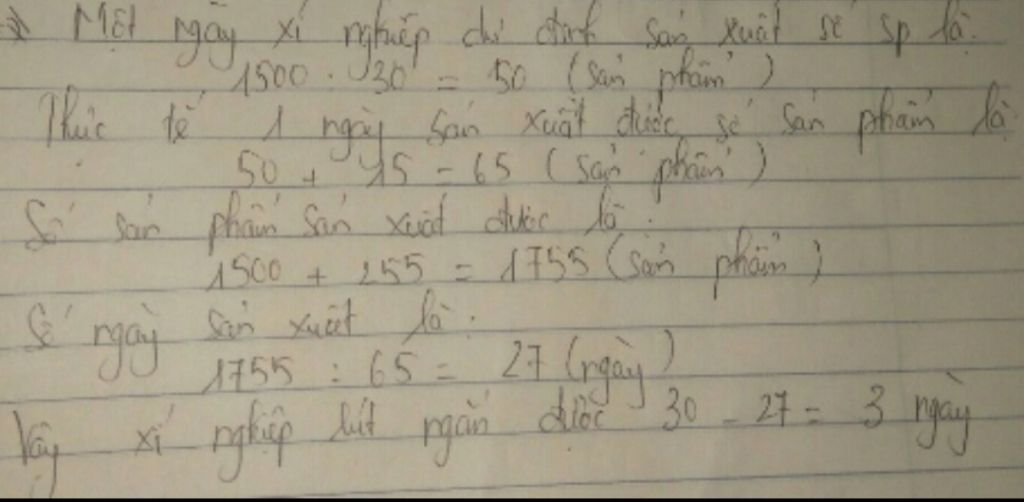 Một ngày xí nghiệp dự định sản xuất số sp là:
1500 : 30 = 50 (sản phẩm)
Thực tế 1 ngày sản xuất được số sản phẩm là
50 + 15 = 65 (sản phẩm)
Số sản phẩm sản xuất được là:
1500 + 255 = 1755 (sản phẩm)
Số ngày sản xuất là:
1755 : 65 = 27 (ngày)
Vậy xí nghiệp rút ngắn được 30 - 27 = 3 ngày